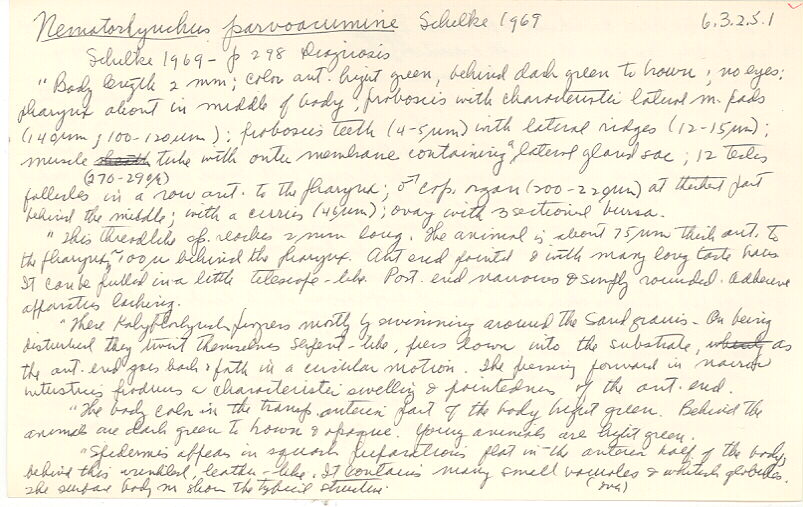 Nematorhynchus parvoacumine Schilke 1969 6.3.2.5.1
Schilke 1969 - p 298 Diagnosis
"Body length 2 mm; color ant. light green, behind dark green to brown; no eyes;
pharynx about in middle of body; proboscis with characteristic lateral m. pads
(140µm ; 100-120µm); proboscis teeth (4-5µm) with lateral ridges (12-15µm);
muscle tube with outer membrane containing lateral gland sac; 12 testes
(270-290µ)
follicles in a row ant. to the pharynx; ♂ cop. organ (200-220µm) at thickest part
behind the middle; with a cirrus (46µm); ovary with 3 sectioned bursa.
"This threadlike sp. reaches 2 mm long. The animal is about 75µm thick ant. to
the pharynx, 100µ behind the pharynx. Ant end pointed & with many long taste hairs
It can be pulled in a little telescope-like. Post. end narrows & simply rounded. Adhesive
apparatus lacking.
"These Kalyptorhynch progress mostly by swimming around the sand grains - On being
disturbed they twist themselves serpent-like, press down into the substrate, as
the ant. end goes back & forth in a circular motion. The pressing forward in narrow
interstices produces a characteristic swelling & pointedness of the ant. end.
"The body color in the transp. anterior part of the body light green. Behind the
animals are dark green to brown & opaque. Young animals are light green.
"Epidermis appears in squash preparations flat in the anterior half of the body,
behind this wrinkled, leather-like. It contains many small vacuoles & whitish globules.
The surface body m show the typical structure